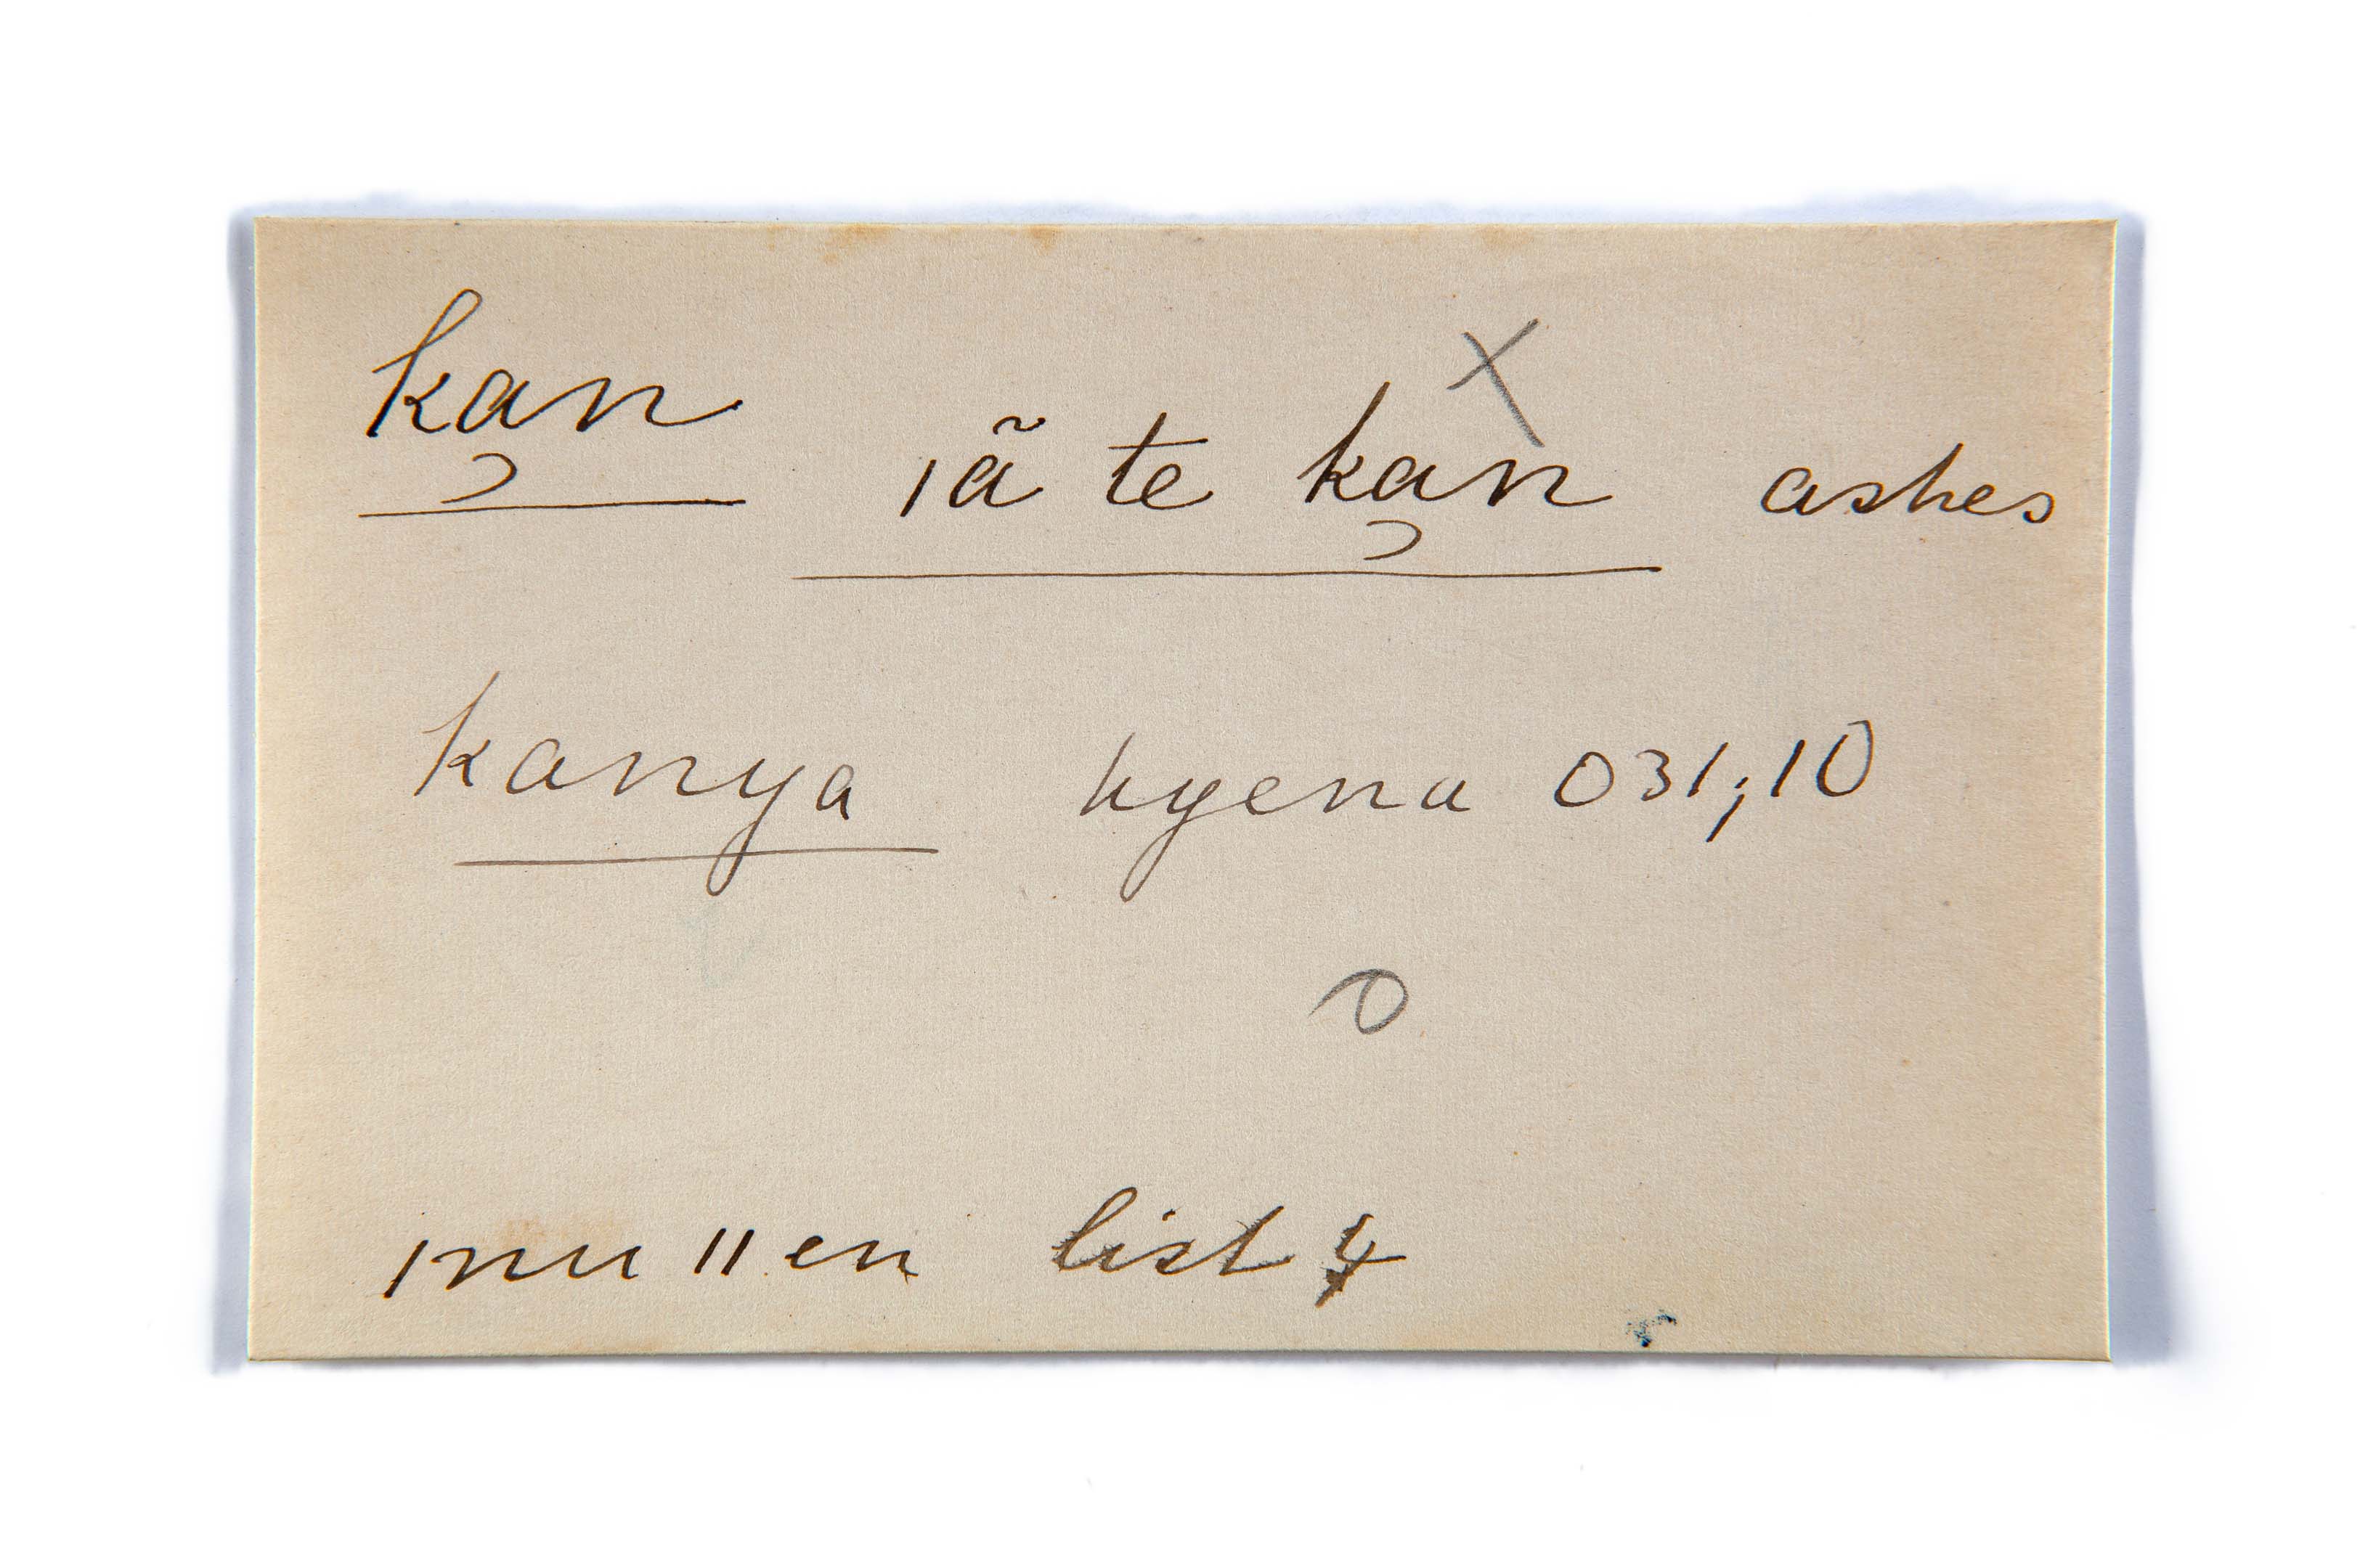 ka̹n
ıã te ka̹n ashes
X
kanya hyena 031;10
O
ınu ıı en list 4